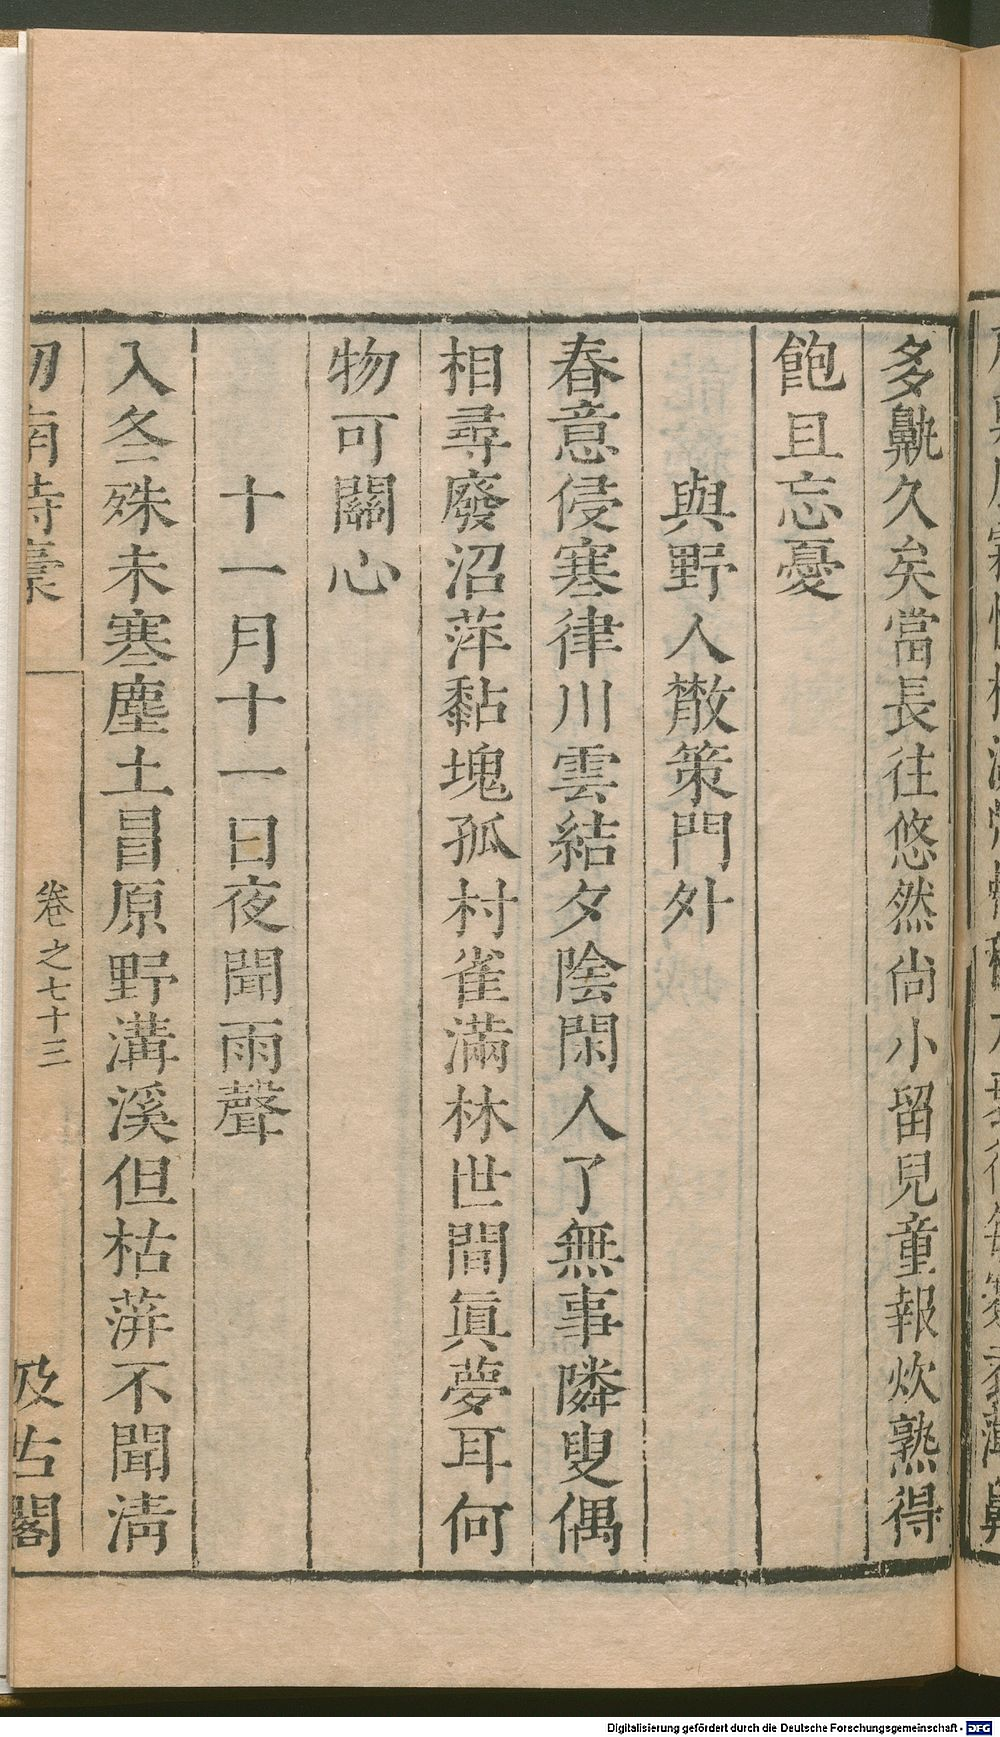 多鼽久矣當長往悠然尙小留兒童報炊熟得
飽且忘憂
與野人散策門外
春意侵寒律川雲結夕陰閑人了無事隣叟偶
相尋廢沼萍黏塊孤村雀滿林世間眞夢耳何
物可關心
十一月十一日夜聞雨聲
入冬殊未寒塵土冒原野溝溪但枯萍不聞淸
劒南詩稾
卷之七十三
汲古閣
Digitalisierung gefördert durch die Deutsche Forschungsgemeinschaft - DFG